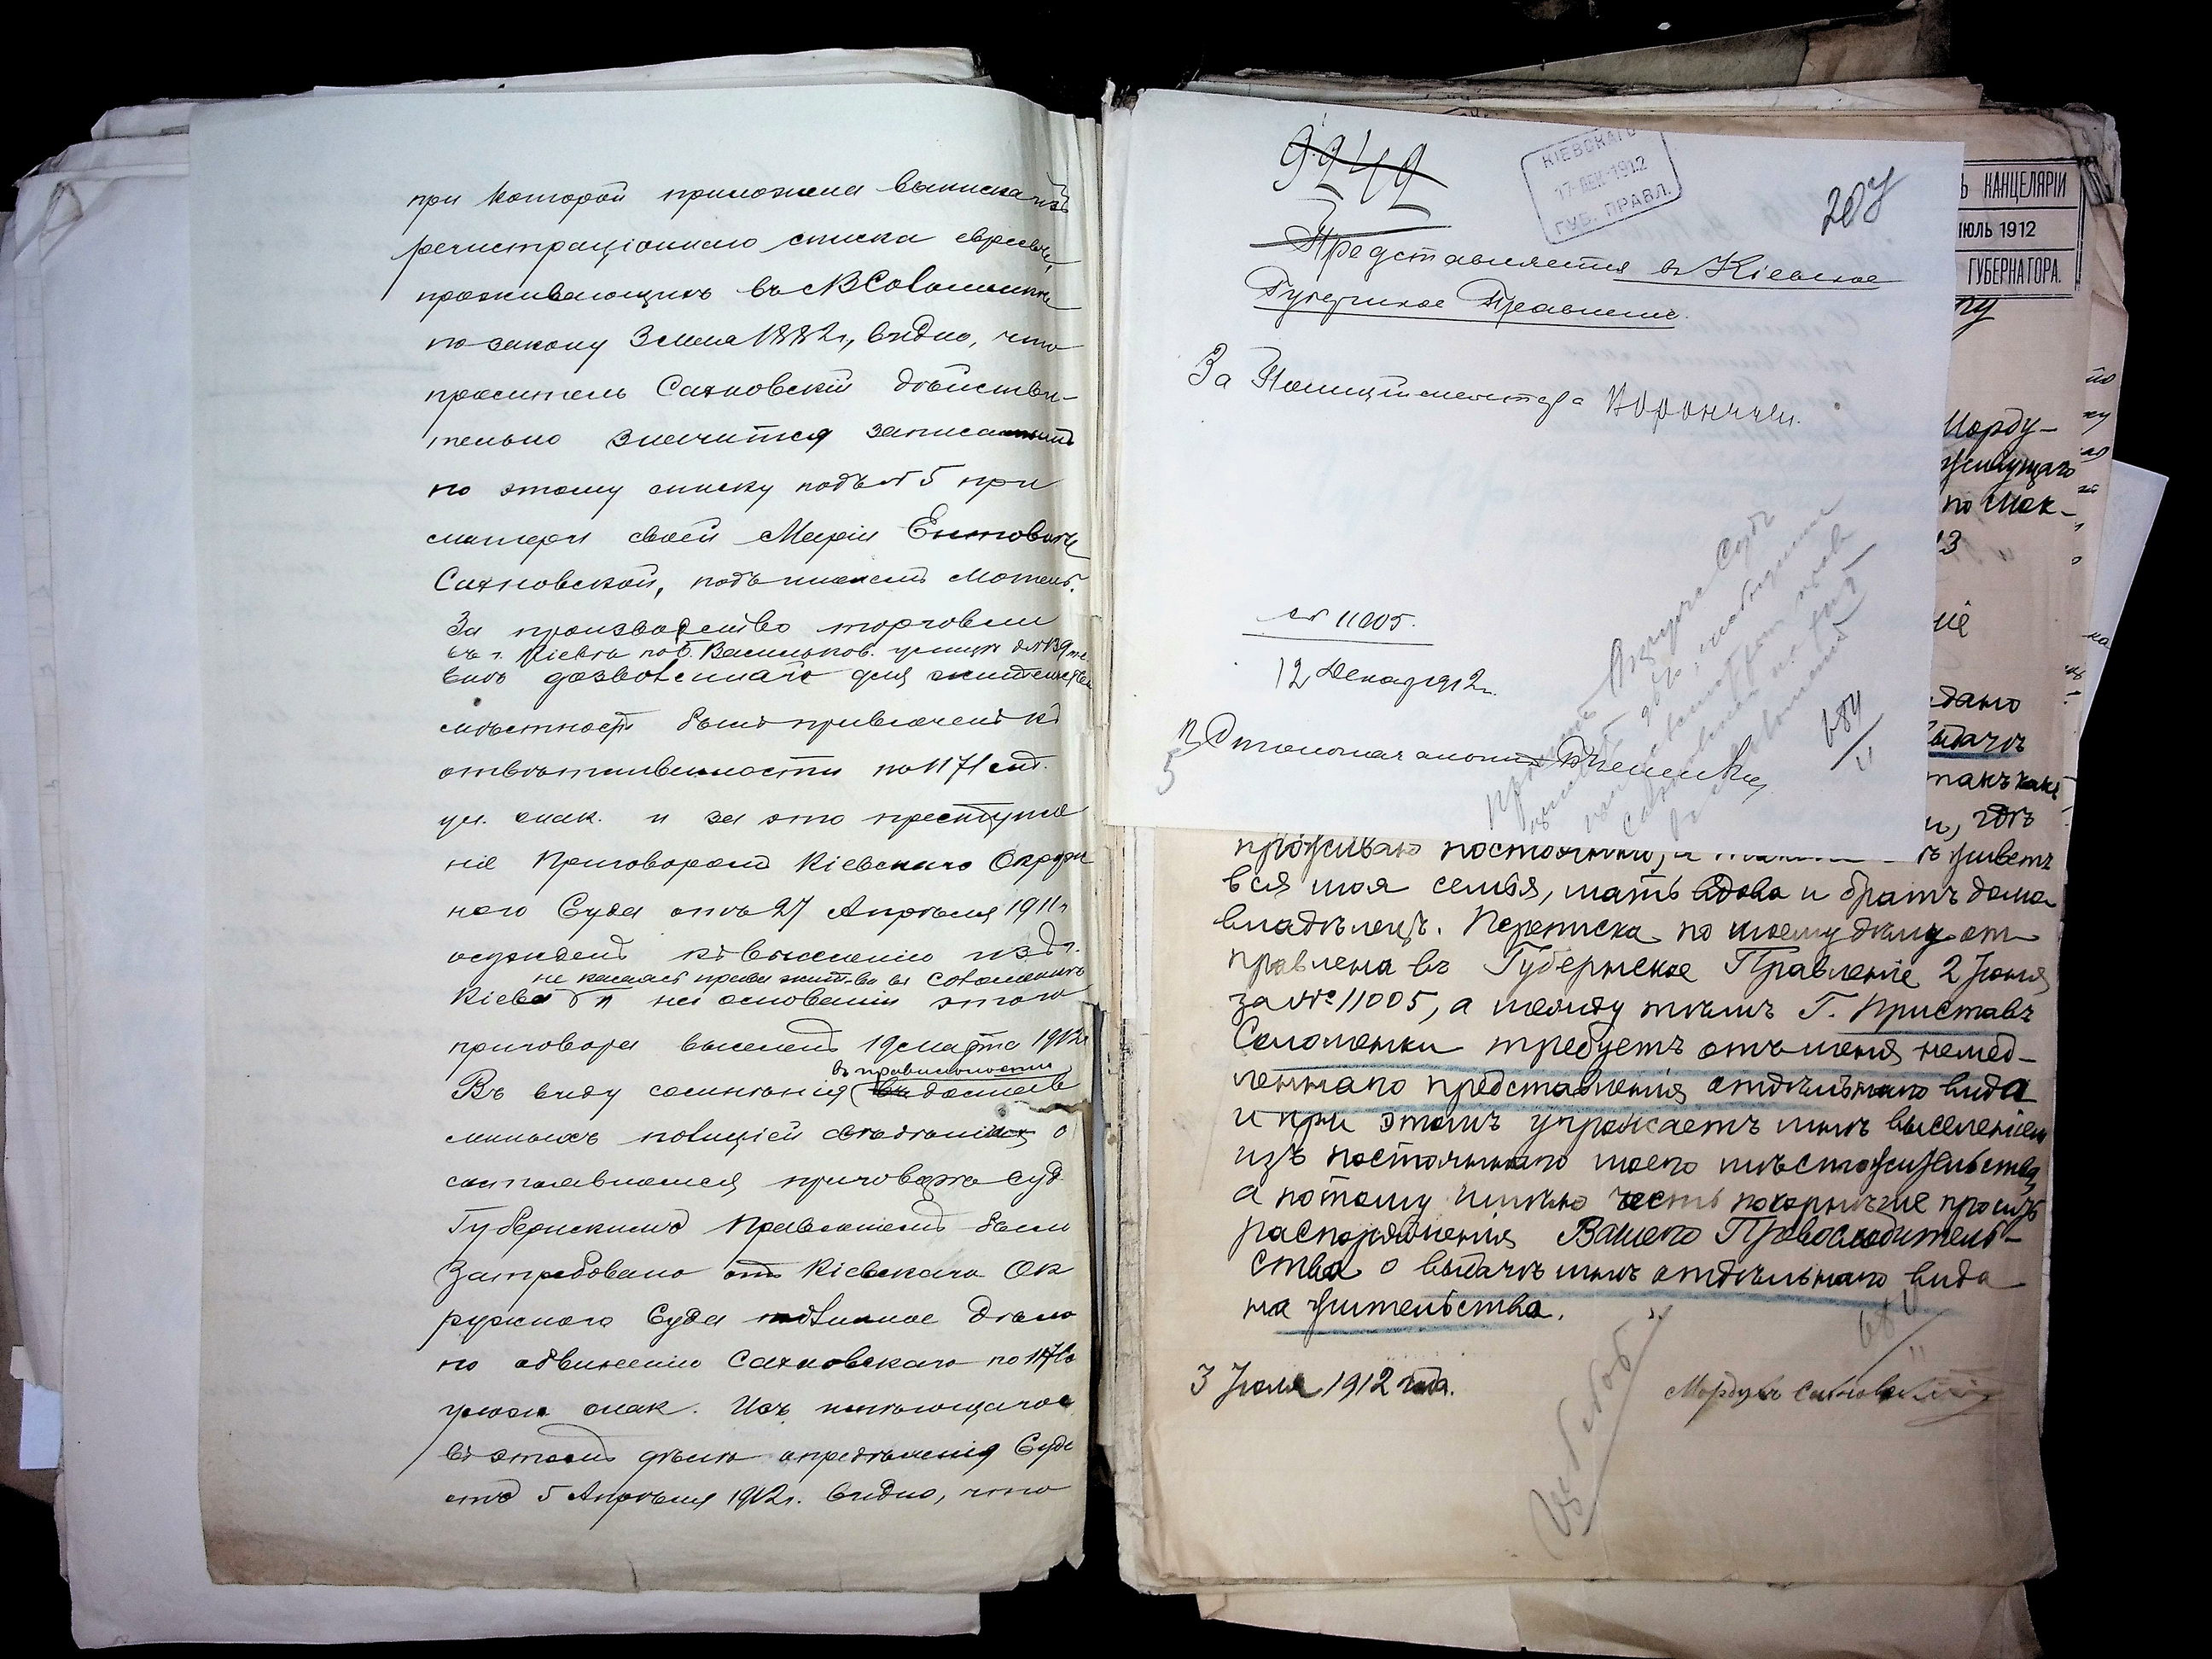 при которой приложена выписка изъ
регистраціоннаго списка евреевъ,
проживающихъ въ Соломенкѣ
по закону 3 мая 1882 г., видно, что
проситель Сахновскій дѣйстви-
тельно значится записаннымъ
по этому списку подъ № 5 при
матери своей Маріи
Сахновской, подъ именемъ Мотель.
За производство торговли
въ г. Кіевѣ по Б. Васильков. улицѣ
внѣ дозволеннаго для жительства
мѣстности былъ привлеченъ къ
отвѣтственности по 1171 ст.
ул. о нак. и за это преступле
ніе приговоромъ Кіевскаго Окруж
ного Суда отъ 27 Апрѣля 1911 г.
осужденъ къ выселенію изъ г.
не касаясь права жит-ва въ Соломенкѣ
Кіева и на основаніи этого
приговора выселенъ 19 Марта 1912 г.
въ правильности
Въ виду сомнѣнія въ доставл
енныхъ полиціей свѣдѣніяхъ о
состоявшемся приговорѣ Суд
Губернскимъ Правленіемъ было
затребовано отъ Кіевскаго Ок
ружного Суда подлинное дѣло
по обвиненію Сахновскаго по 1171 с
улож. о нак. Изъ имѣющагося
въ этомъ дѣлѣ опредѣленія Суда
отъ 5 Апрѣля 1912 г. видно, что
9249
КІЕВСКАГО
17 ДЕК 1912
ГУБ. ПРАВЛ.
207
Представляется въ Кіевское
Губернское Правленіе.
За Полиціймейстера
№ 11005.
12 Декаб 1912 г.
Столоначальникъ
684
Ъ КАНЦЕЛЯРІИ
ІЮЛЬ 1912
ГУБЕРНАТОРА.
ру
Морду-
живущаго
по Мок-
13
ніе
дано
выдачѣ
такъ какъ
и, гдѣ
проживаю постоянно, и живетъ
вся моя семья, мать вдова и братъ домо
владѣлецъ. Переписка по моему дѣлу от
правлена въ Губернское Правленіе 2 Іюня
за № 11005, а между тѣмъ Г. Приставъ
Соломенки требуетъ отъ меня немед-
леннаго представленія отдѣльнаго вида
и при этомъ угрожаетъ мнѣ выселеніемъ
изъ постояннаго моего мѣстожительства,
а потому имѣю честь покорнѣйше просить
распоряженія Вашего Превосходитель-
ства о выдачѣ мнѣ отдѣльнаго вида
на жительство.
3 Іюля 1912 года.
Мордухъ Сахновскій